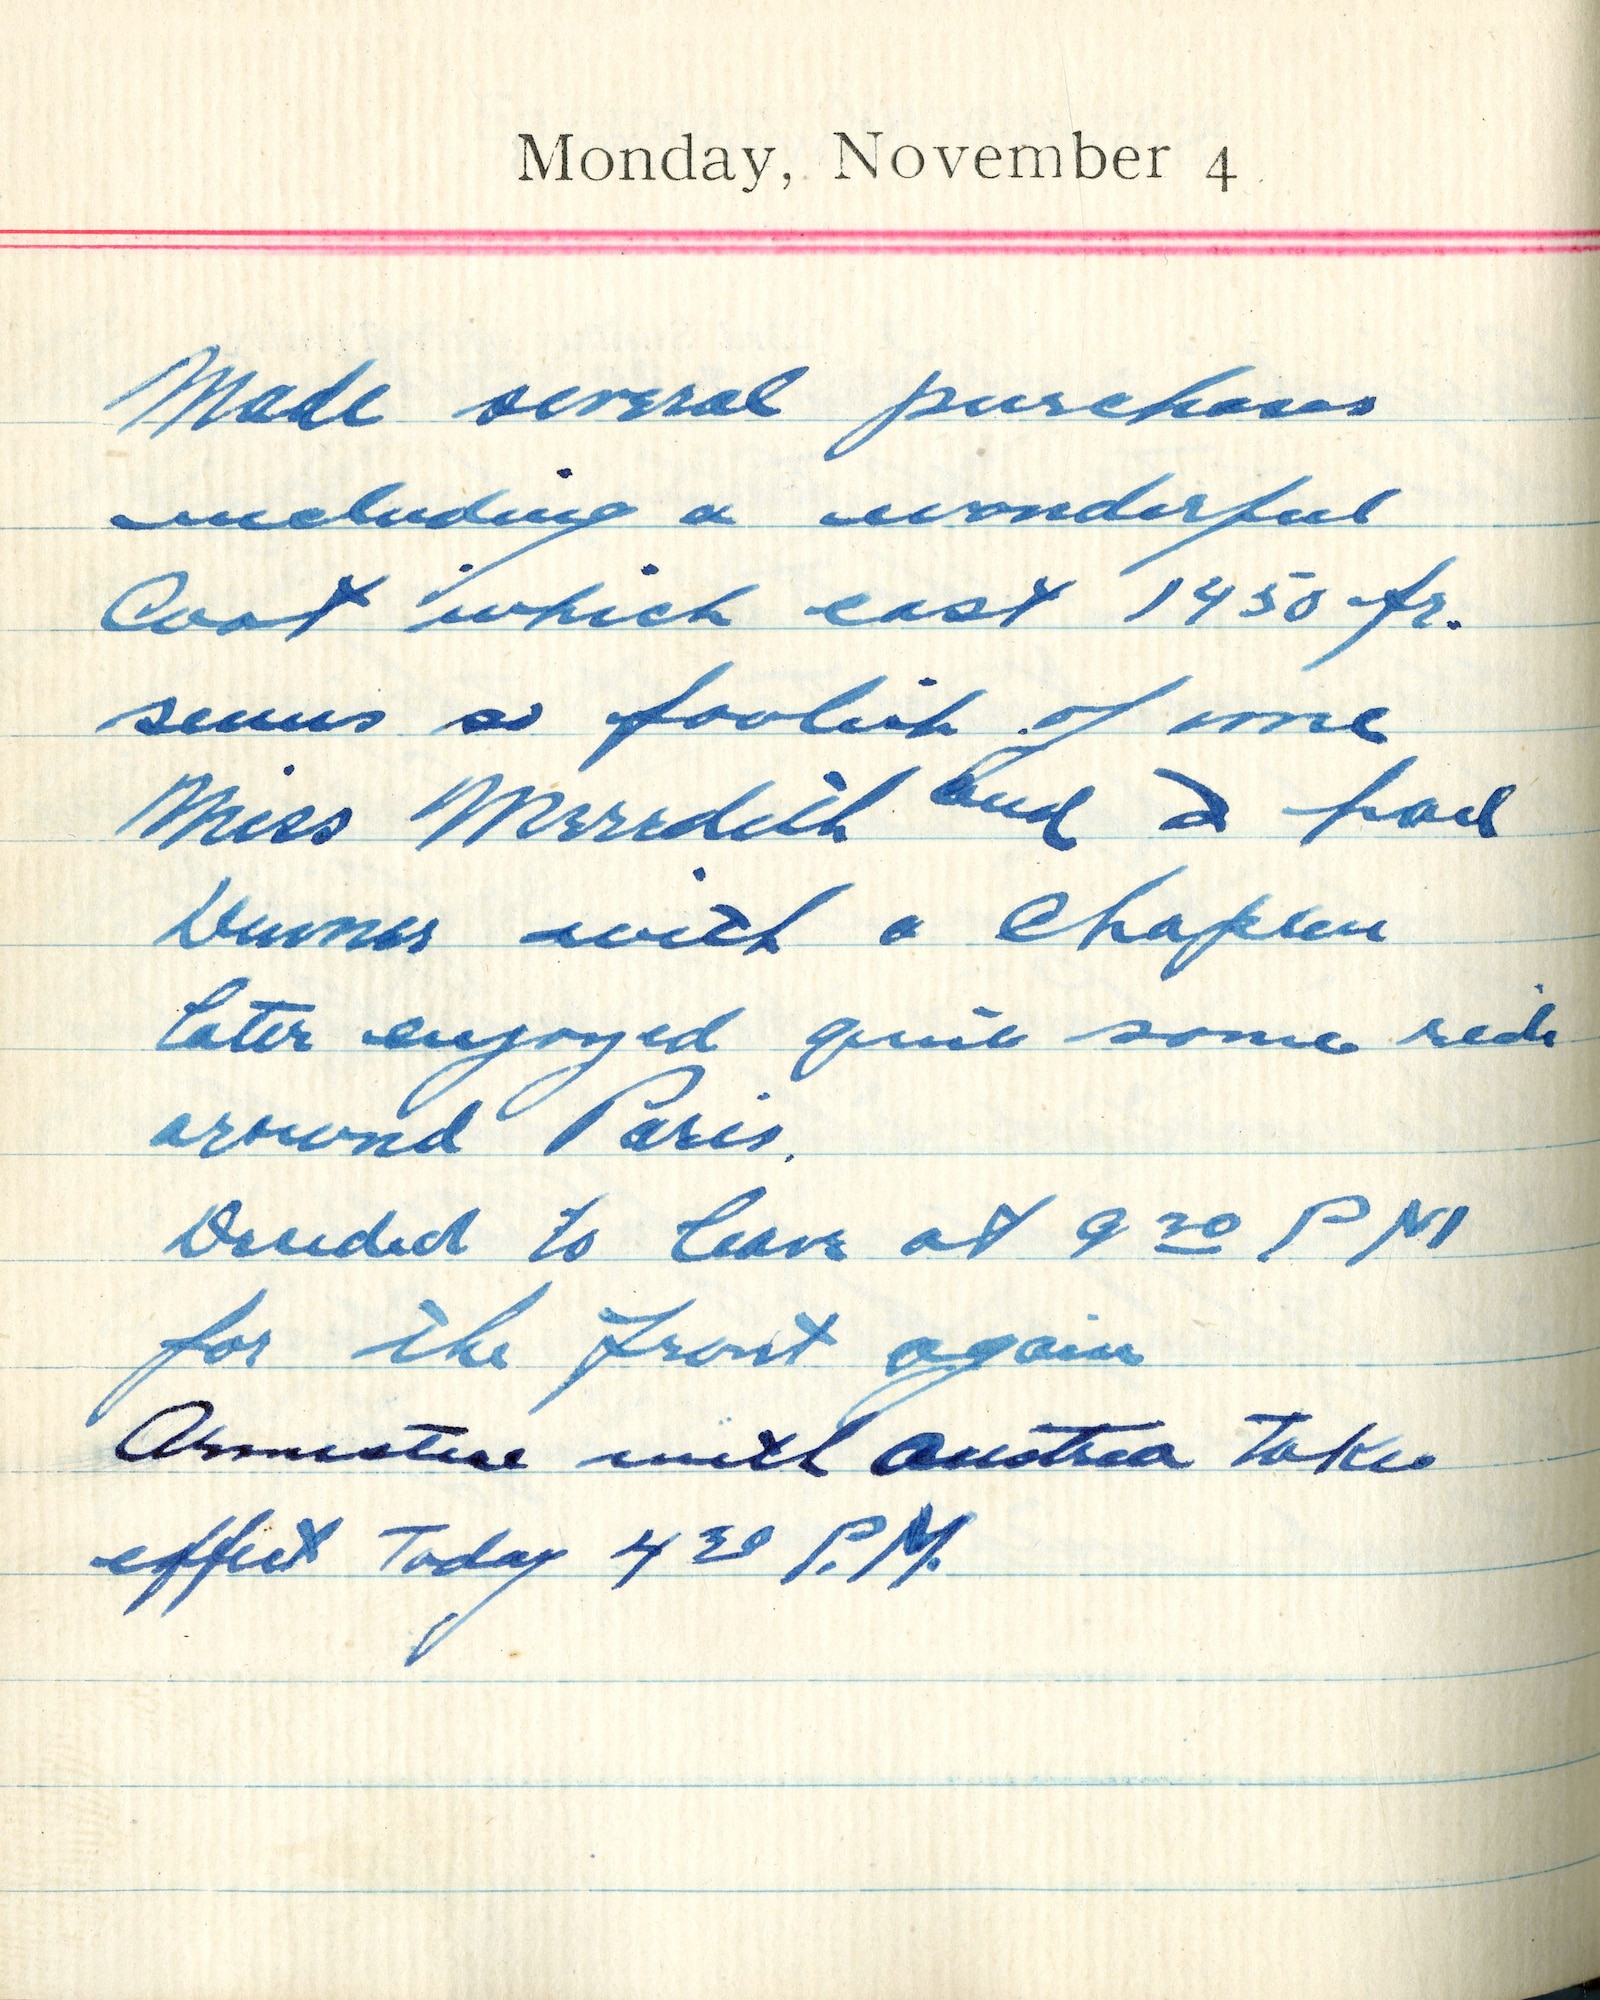 Monday, November 4
Made several purchases
including a wonderful
Coat which cost 1450 fr.
seems so foolish of me
Miss Meredith and I had
Dinner with a Chaplin
later enjoyed quite some ride
around Paris.
Decided to leave at 9 30 P M
for the Front again
Armistice with Austria takes
effect Today 4 30 P.M.